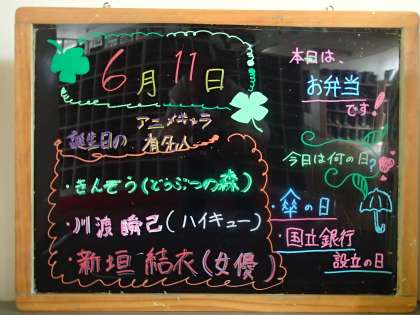 6月11日
誕生日の アニメキャラ
有名人
・きんぞう(どうぶつの森)
・川渡瞬己(ハイキュー)
・新垣 結衣(女優)
本日は、
お弁当
です!
今日は何の日?
・傘の日
・国立銀行
設立の日